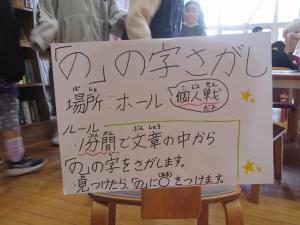 「の」の字さがし
場所：ホール 個人戦だよ
ルール
1分簡で文章の中から
「の」の字をさがします。
見つけたら、「の」に○をつけます。